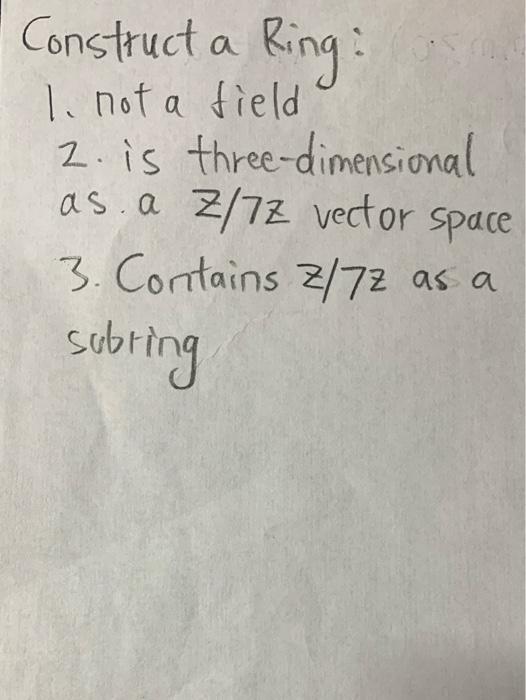 Construct a Ring:
1. not a field
2. is three-dimensional
as a Z/7Z vector space
3. Contains Z/7Z as a
subring